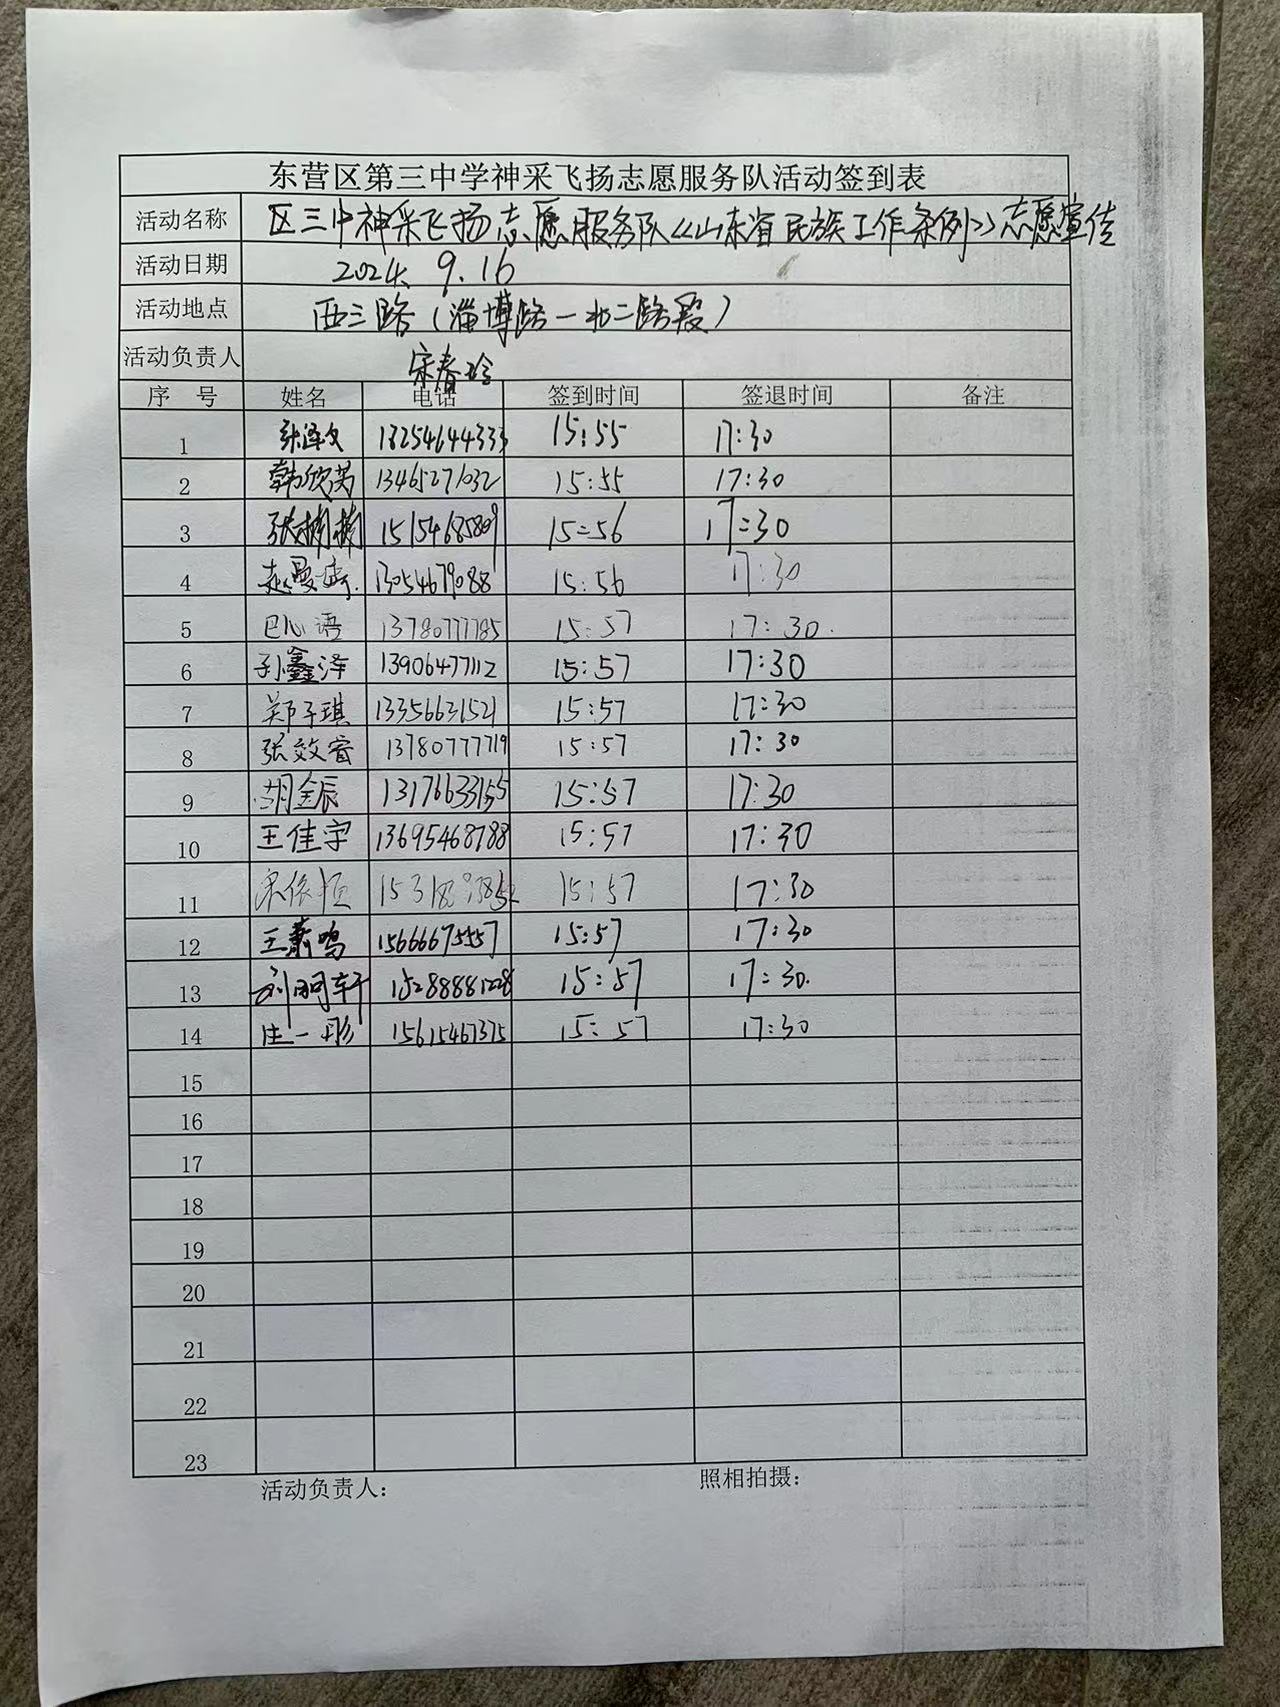 东营区第三中学神采飞扬志愿服务队活动签到表
活动名称 区三中神采飞扬志愿服务队《山东省民族工作条例》志愿宣传
活动日期 2024.9.16
活动地点 西三路（淄博路一北二路段）
活动负责人 宋春玲
序 号 姓名 电话 签到时间 签退时间 备注
1 张泽文 13254644333 15:55 17:30
2 韩欣芮 13465271032 15:55 17:30
3 张楠楠 15154685809 15:56 17:30
4 赵曼 13054679088 15:56 17:30
5 巴心语 13780777785 15:57 17:30.
6 孙鑫泽 13906477112 15:57 17:30
7 郑子琪 13356631521 15:57 17:30
8 张效睿 13780777719 15:57 17:30
9 胡金辰 13176633155 15:57 17:30
10 王佳宇 13695468788 15:57 17:30
11 15:57 17:30
12 王萧鸣 15666675557 15:57 17:30
13 刘珂轩 15288881228 15:57 17:30.
14 庄一彤 15615467375 15:57 17:30
15
16
17
18
19
20
21
22
23
活动负责人： 照相拍摄：